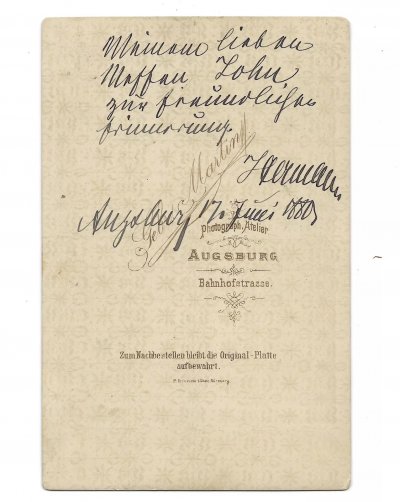 Meinem lieben
Neffen John
zur freundlichen
Erinnerung.
Hermann
Augsburg 17. Juni 1880
Gebr. Martin
Photograph. Atelier
AUGSBURG
Bahnhofstrasse.
Zum Nachbestellen bleibt die Original-Platte
aufbewahrt.